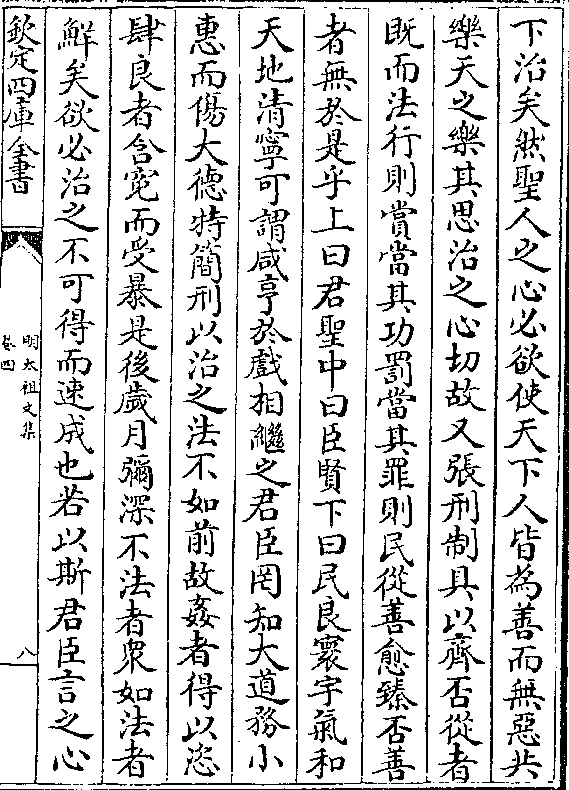 下治矣然聖人之心必欲使天下人皆為善而無惡共
樂天之樂其思治之心切故又張刑制具以齊否從者
既而法行則賞當其功罰當其罪則民從善愈臻否善
者無於是乎上曰君聖中曰臣賢下曰民良寰宇氣和
天地清寧可謂咸亨於戲相繼之君臣罔知大道務小
惠而傷大德特簡刑以治之法不如前故姦者得以恣
肆良者含寃而受暴是後歲月彌深不法者衆如法者
鮮矣欲必治之不可得而速成也若以斯君臣言之心
欽定四庫全書
明太祖文集
卷四
八